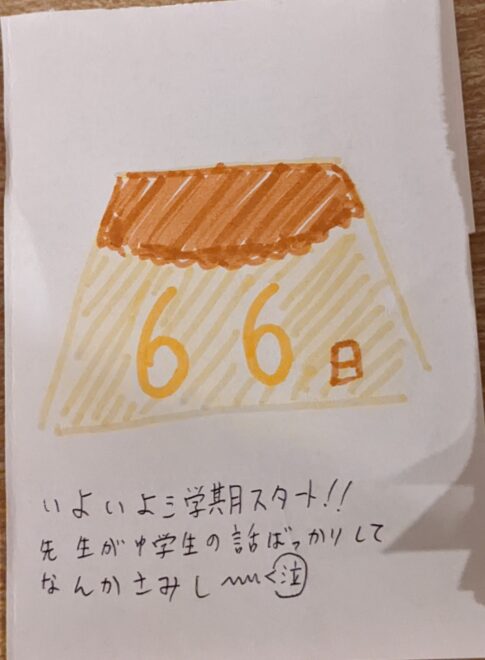 66日
いよいよ三学期スタート!!
先生が中学生の話ばっかりして
なんかさみし〜〜く泣